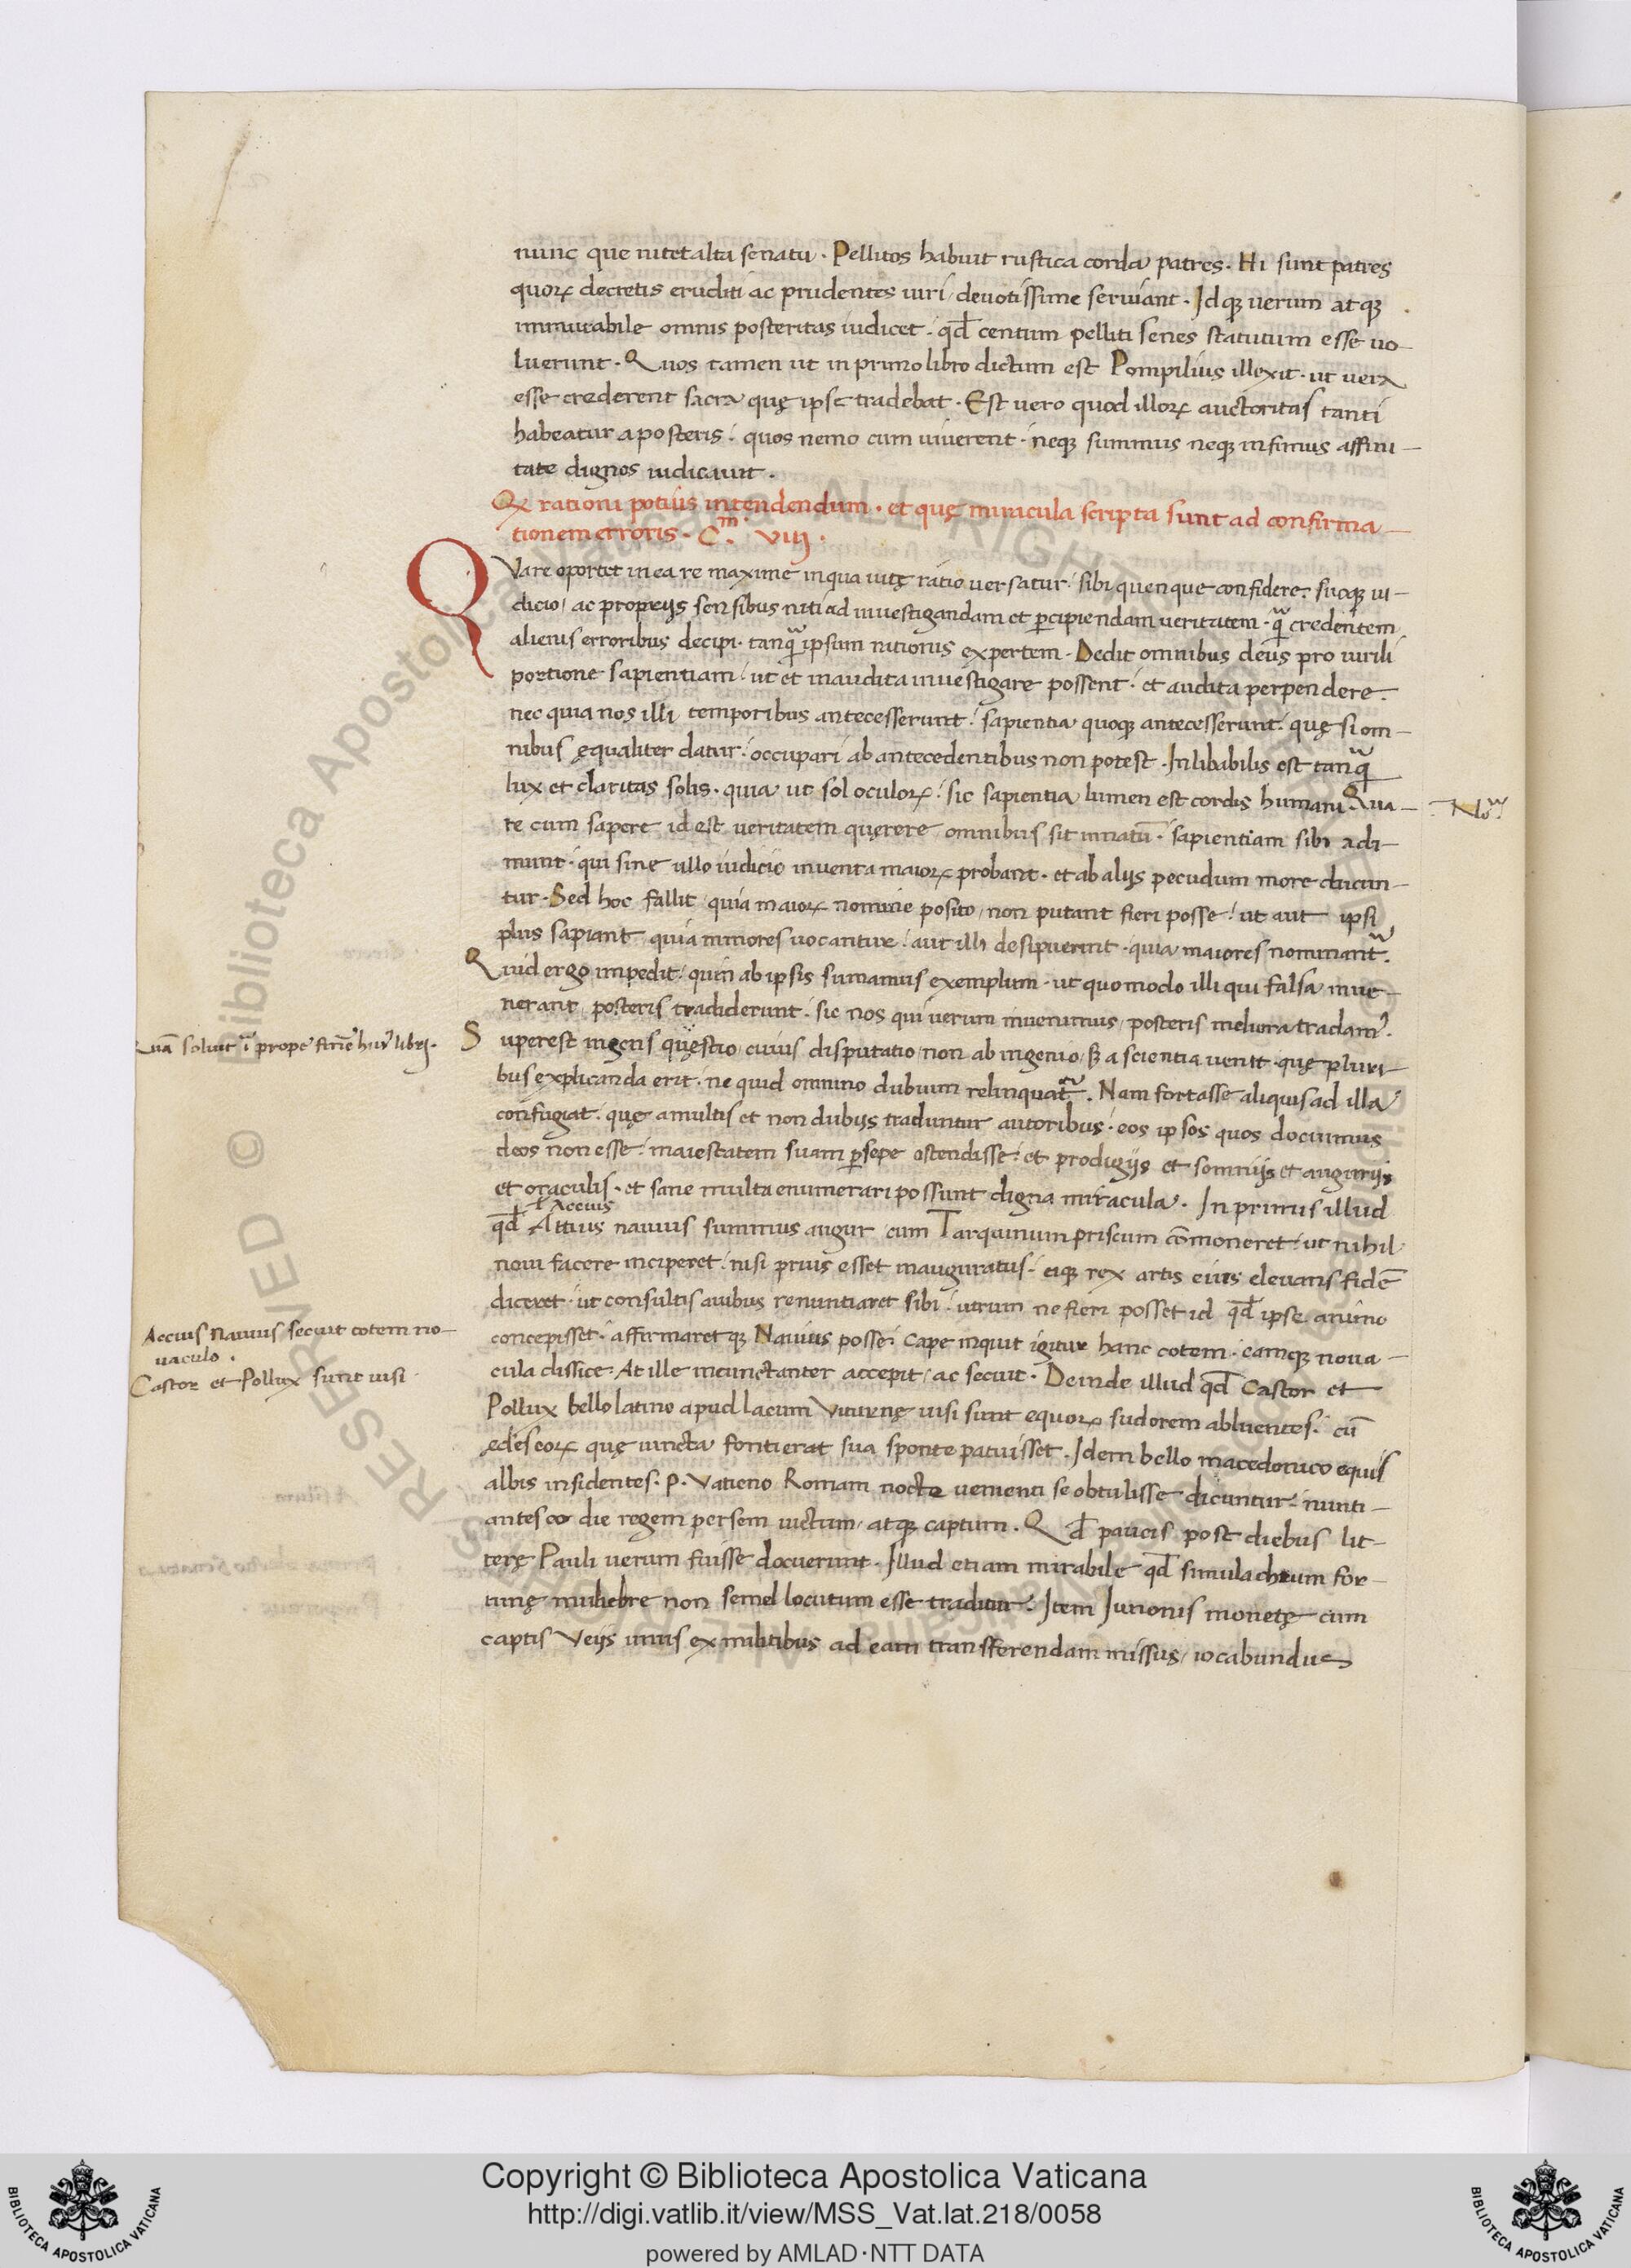 nunc que nitet alta senatu . Pellitos habuit rustica corda patres . Hi sunt patres
quoꝝ decretis eruditi ac prudentes uiri / deuotissime seruiant . Idqꝫ uerum atqꝫ
immutabile omnis posteritas iudicet . qđ centum pelliti senes statutum esse uo-
luerunt . Quos tamen ut in primo libro dictum est Pompilius illexit . ut uera
esse crederent sacra quę ipse tradebat . Est uero quod illoꝝ auctoritas tanti
habeatur a posteris : quos nemo cum uiuerent . neqꝫ summus neqꝫ infimus affini-
tate dignos iudicauit .
Qꝫ rationi potius intendendum . et quę miracula scripta sunt ad confirma-
tionem erroris . C.m VIIJ .
QVare oportet in ea re maxime in qua uitę ratio uersatur : sibi quenque confidere : suoqꝫ iu-
dicio / ac proprijs sensibus niti ad inuestigandam et ꝑcipiendam ueritatem . q̃ credentem
alienis erroribus decipi . tanq̃ ipsum rationis expertem . Dedit omnibus deus pro uirili
portione sapientiam : ut et inaudita inuestigare possent : et audita perpendere .
nec quia nos illi temporibus antecesserunt : sapientia quoqꝫ antecesserunt . quę si om-
nibus ęqualiter datur : occupari ab antecedentibus non potest . Inlibabilis est tanq̃
lux et claritas solis . quia ut sol oculoꝝ : sic sapientia lumen est cordis humani . Qua-
Noa
re cum sapere id est ueritatem quęrere omnibus sit innatũ . sapientiam sibi adi-
munt . qui sine ullo iudicio inuenta maioꝝ probant . et ab alijs pecudum more ducun-
tur . Sed hoc fallit / quia maioꝝ nomine posito / non putant fieri posse : ut aut ipsi
plus sapiant / quia minores uocantur : aut illi desipuerint . quia maiores nominant᷑.
Quid ergo impedit / quin ab ipsis sumamus exemplum . ut quomodo illi qui falsa inue-
nerant / posteris tradiderunt : sic nos qui uerum inuenimus / posteris meliora tradam᷒.
Quã soluit ĩ prope finẽ hui᷒ librj .
Superest ingens quęstio / cuius disputatio / non ab ingenio / sꝫ a scientia uenit . quę pluri-
bus explicanda erit . ne quid omnino dubium relinquat᷑ . Nam fortasse aliquis ad illa
confugiat . quę a multis et non dubijs traduntur autoribus . eos ipsos quos docuimus
deos non esse : maiestatem suam ꝑsepe ostendisse : et prodigijs et somnijs et augurijs
et oraculis . et sane multa enumerari possunt digna miracula . In primis illud
ł Accius
qđ Attius nauius summus augur / cum Tarquinum priscum cõmoneret : ut nihil
noui facere inciperet : nisi prius esset inauguratus : eiqꝫ rex artis eius eleuans fidẽ
diceret . ut consultis auibus renuntiaret sibi : utrum ne fieri posset id qđ ipse animo
Accius Nauius secuit cotem no-
uaculo .
concepisset . affirmaretqꝫ Nauius posse : cape inquit igitur hanc cotem . eamqꝫ noua-
cula dissice . At ille incunctanter accepit / ac secuit . Deinde illud qđ Castor et
Castor et Pollux sunt uisi .
Pollux bello latino apud lacum Viturnę uisi sunt equoꝝ sudorem abluentes . cũ
ędes eoꝝ quę iuncta fonti erat sua sponte patuisset . Idem bello macedonico equis
albis insidentes . P. Vatieno Romam nocte uenienti se obtulisse dicuntur . nunti-
antes eo die regem persem uictum / atqꝫ captum . Qđ paucis post diebus lit-
terę Pauli uerum fuisse docuerunt . Illud etiam mirabile qđ simulachrum for-
tunę muliebre non semel locutum esse traditur . Item Iunonis monetę cum
captis Veijs unus ex militibus ad eam transferendam missus / iocabundus
Copyright © Biblioteca Apostolica Vaticana
http://digi.vatlib.it/view/MSS_Vat.lat.218/0058
powered by AMLAD·NTT DATA